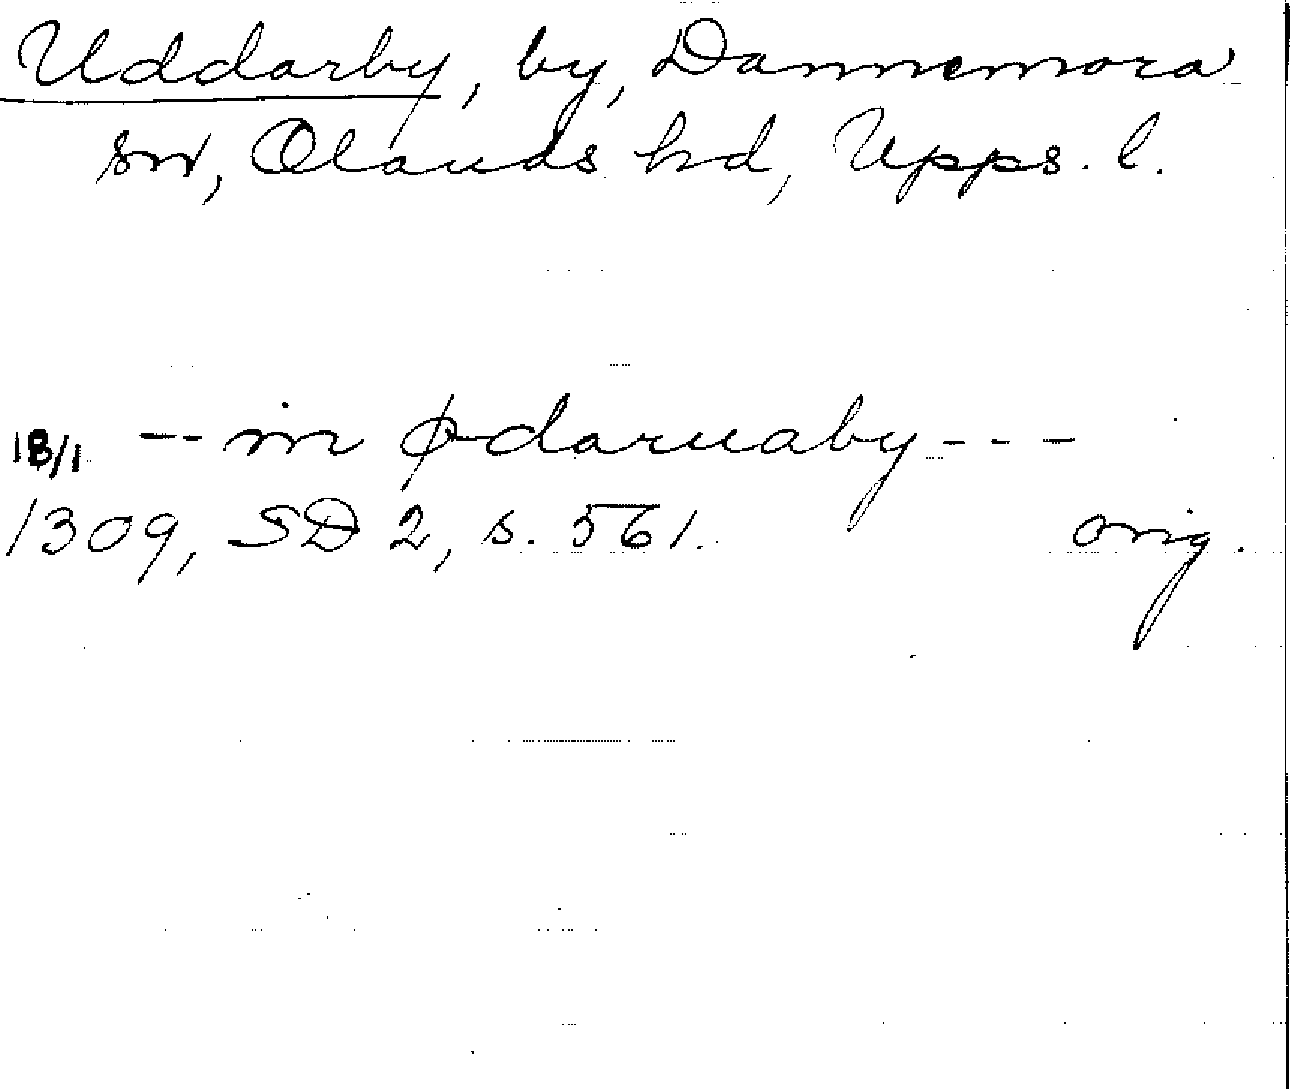 Uddarby, by, Dannemora
sn, Olands hd, Upps. l.
18/1 -- in ødaruaby ---
1309, SD 2, s. 561. orig.